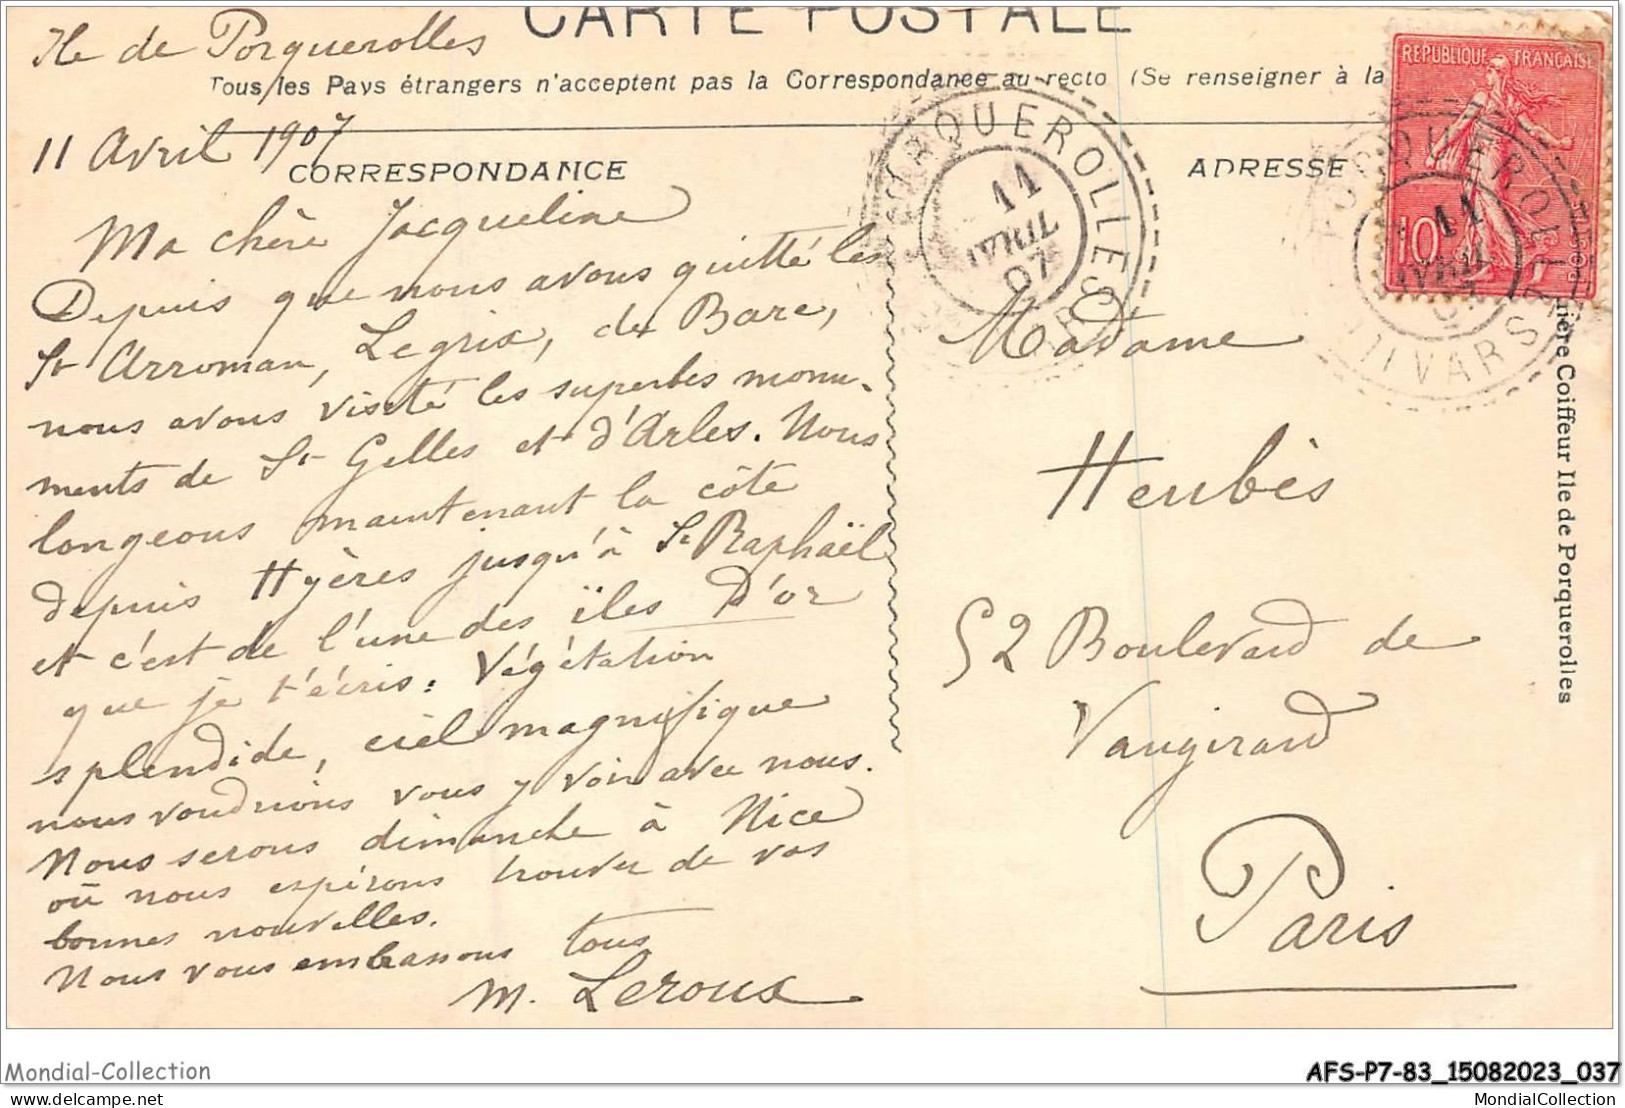 CARTE POSTALE
Ile de Porquerolles
Tous les Pays étrangers n'acceptent pas la Correspondance au recto (Se renseigner à la
11 Avril 1907
CORRESPONDANCE
Ma chère Jacqueline
Depuis que nous avons quitté les
St Arroman, Legrix, de Bare,
nous avons visité les superbes monu-
ments de St Gelles et d'Arles. Nous
longeons maintenant la côte
depuis Hyères jusqu'à St Raphaël
et c'est de l'une des îles D'or
que je t'écris. Végétation
splendide, ciel magnifique
nous voudrions vous y voir avec nous.
Nous serons dimanche à Nice
où nous espérons trouver de vos
bonnes nouvelles.
Nous vous embrassons tous
M. Leroux
ADRESSE
Madame
Heubès
52 Boulevard de
Vaugirard
Paris
PORQUEROLLES
11
AVRIL
07
REPUBLIQUE FRANÇAISE
10
POSTES
PORQUEROLLES
11
AVRIL
07
VAR
Coiffeur Ile de Porquerolles
Mondial-Collection
AFS-P7-83_15082023_037
delcampe.net
MondialCollection